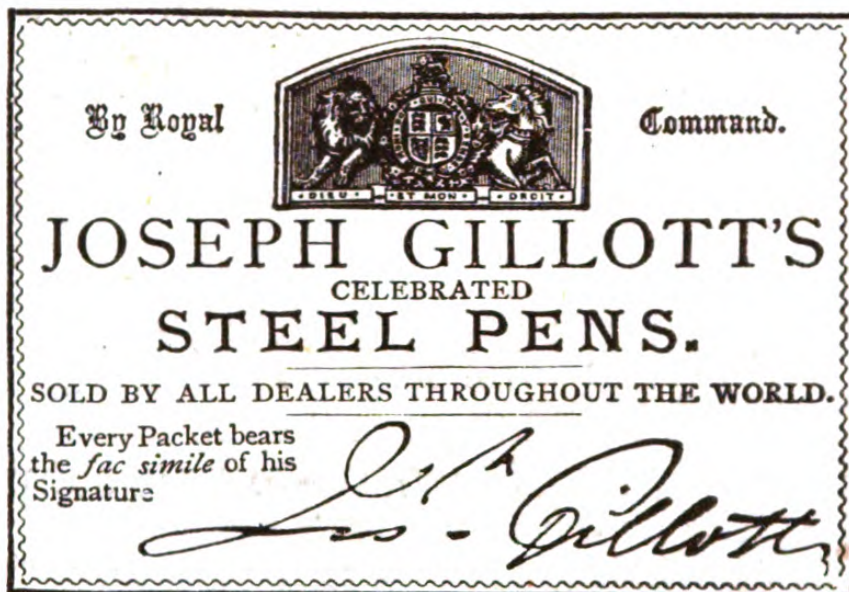 By Royal Command.
DIEU ET MON DROIT
JOSEPH GILLOTT'S
CELEBRATED
STEEL PENS.
SOLD BY ALL DEALERS THROUGHOUT THE WORLD.
Every Packet bears
the fac simile of his
Signature
Josh. Gillott